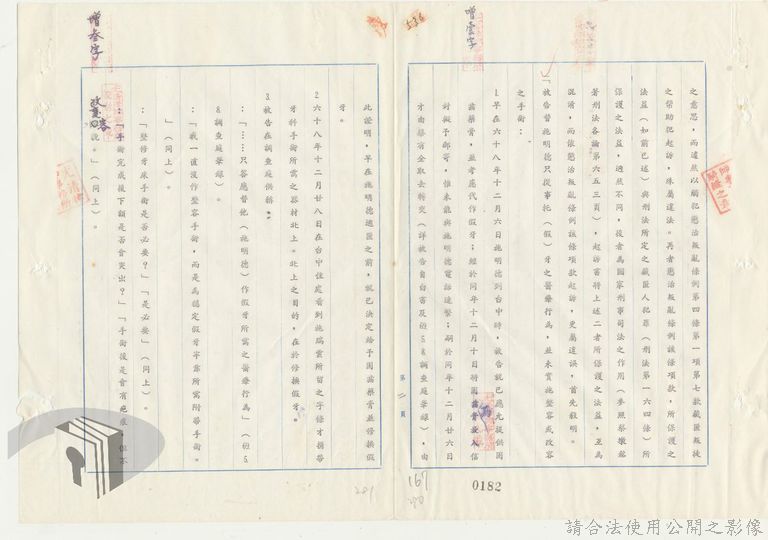 增壹字
536
之意思,而遽然以觸犯懲治叛亂條例第四條第一項第七款藏匿叛徒
之幫助犯起訴,殊屬違法。再者懲治叛亂條例該條項款,所保護之
法益(如前已述)與刑法所定之藏匿人犯罪(刑法第一六四條)所
保護之法益,迥然不同,後者為國家刑事司法之作用(參照蔡墩銘
著刑法各論第六五三頁),起訴書將上述二者所保護之法益,互為
混淆,而依懲治叛亂條例該條項款起訴,更屬違誤,首先敍明。
「被告替施明德只從事托(假)牙之醫療行為,並未實施整容或改容
之手術:
1.早在六十八年十二月六日施明德到台中時,被告就已應允提供固
齒藥膏,並考慮代作假牙;經於同年十二月十日將固齒膏並入信
封擬予郵寄,惟未能與施明德電話連繫;嗣於同年十二月廿六日
才由蔡有全取去轉交(詳被告自白書及69.5.8.調查庭筆錄),由
第二頁
0182
167
增叁字
此證明,早在施明德逃匿之前,就已決定給予固齒藥膏並修換假
牙。
2.六十八年十二月廿八日在台中住處看到施瑞雲所留之字條才攜帶
牙科手術所需之器材北上。北上之目的,在於修換假牙。
3.被告在調查庭供稱:
:「……只答應替他(施明德)作假牙所需之醫療行為」(69.5.
8.調查庭筆錄)。
:「我一直沒作整容手術,而是為穩定假牙牢靠所需附帶手術。
」(同上)。
:「整修牙床手術是否必要?」「是必要」(同上)。
:「手術完成後下顎是否會突出?」「手術後是會有疤痕,但不
說。」(同上)。
281
請合法使用公開之影像